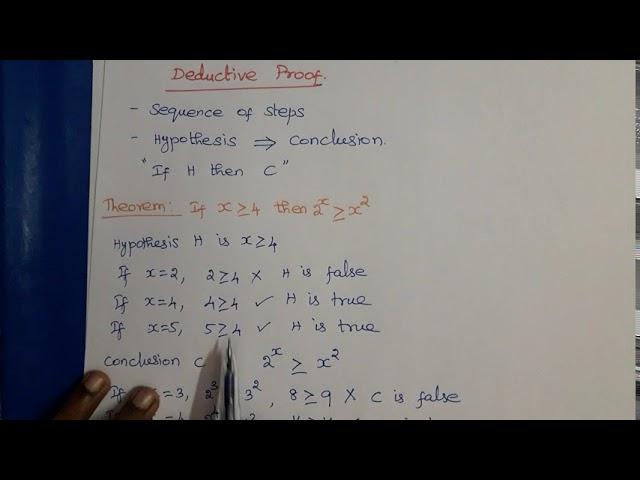 Deductive Proof.
- Sequence of steps
- Hypothesis ⇒ Conclusion.
"If H then C"
Theorem: If x ≥ 4 then 2^x ≥ x^2
Hypothesis H is x ≥ 4
If x=2, 2 ≥ 4 ✗ H is false
If x=4, 4 ≥ 4 ✓ H is true
If x=5, 5 ≥ 4 ✓ H is true
Conclusion C 2^x ≥ x^2
If =3, 2^3 3^2, 8 ≥ 9 ✗ C is false